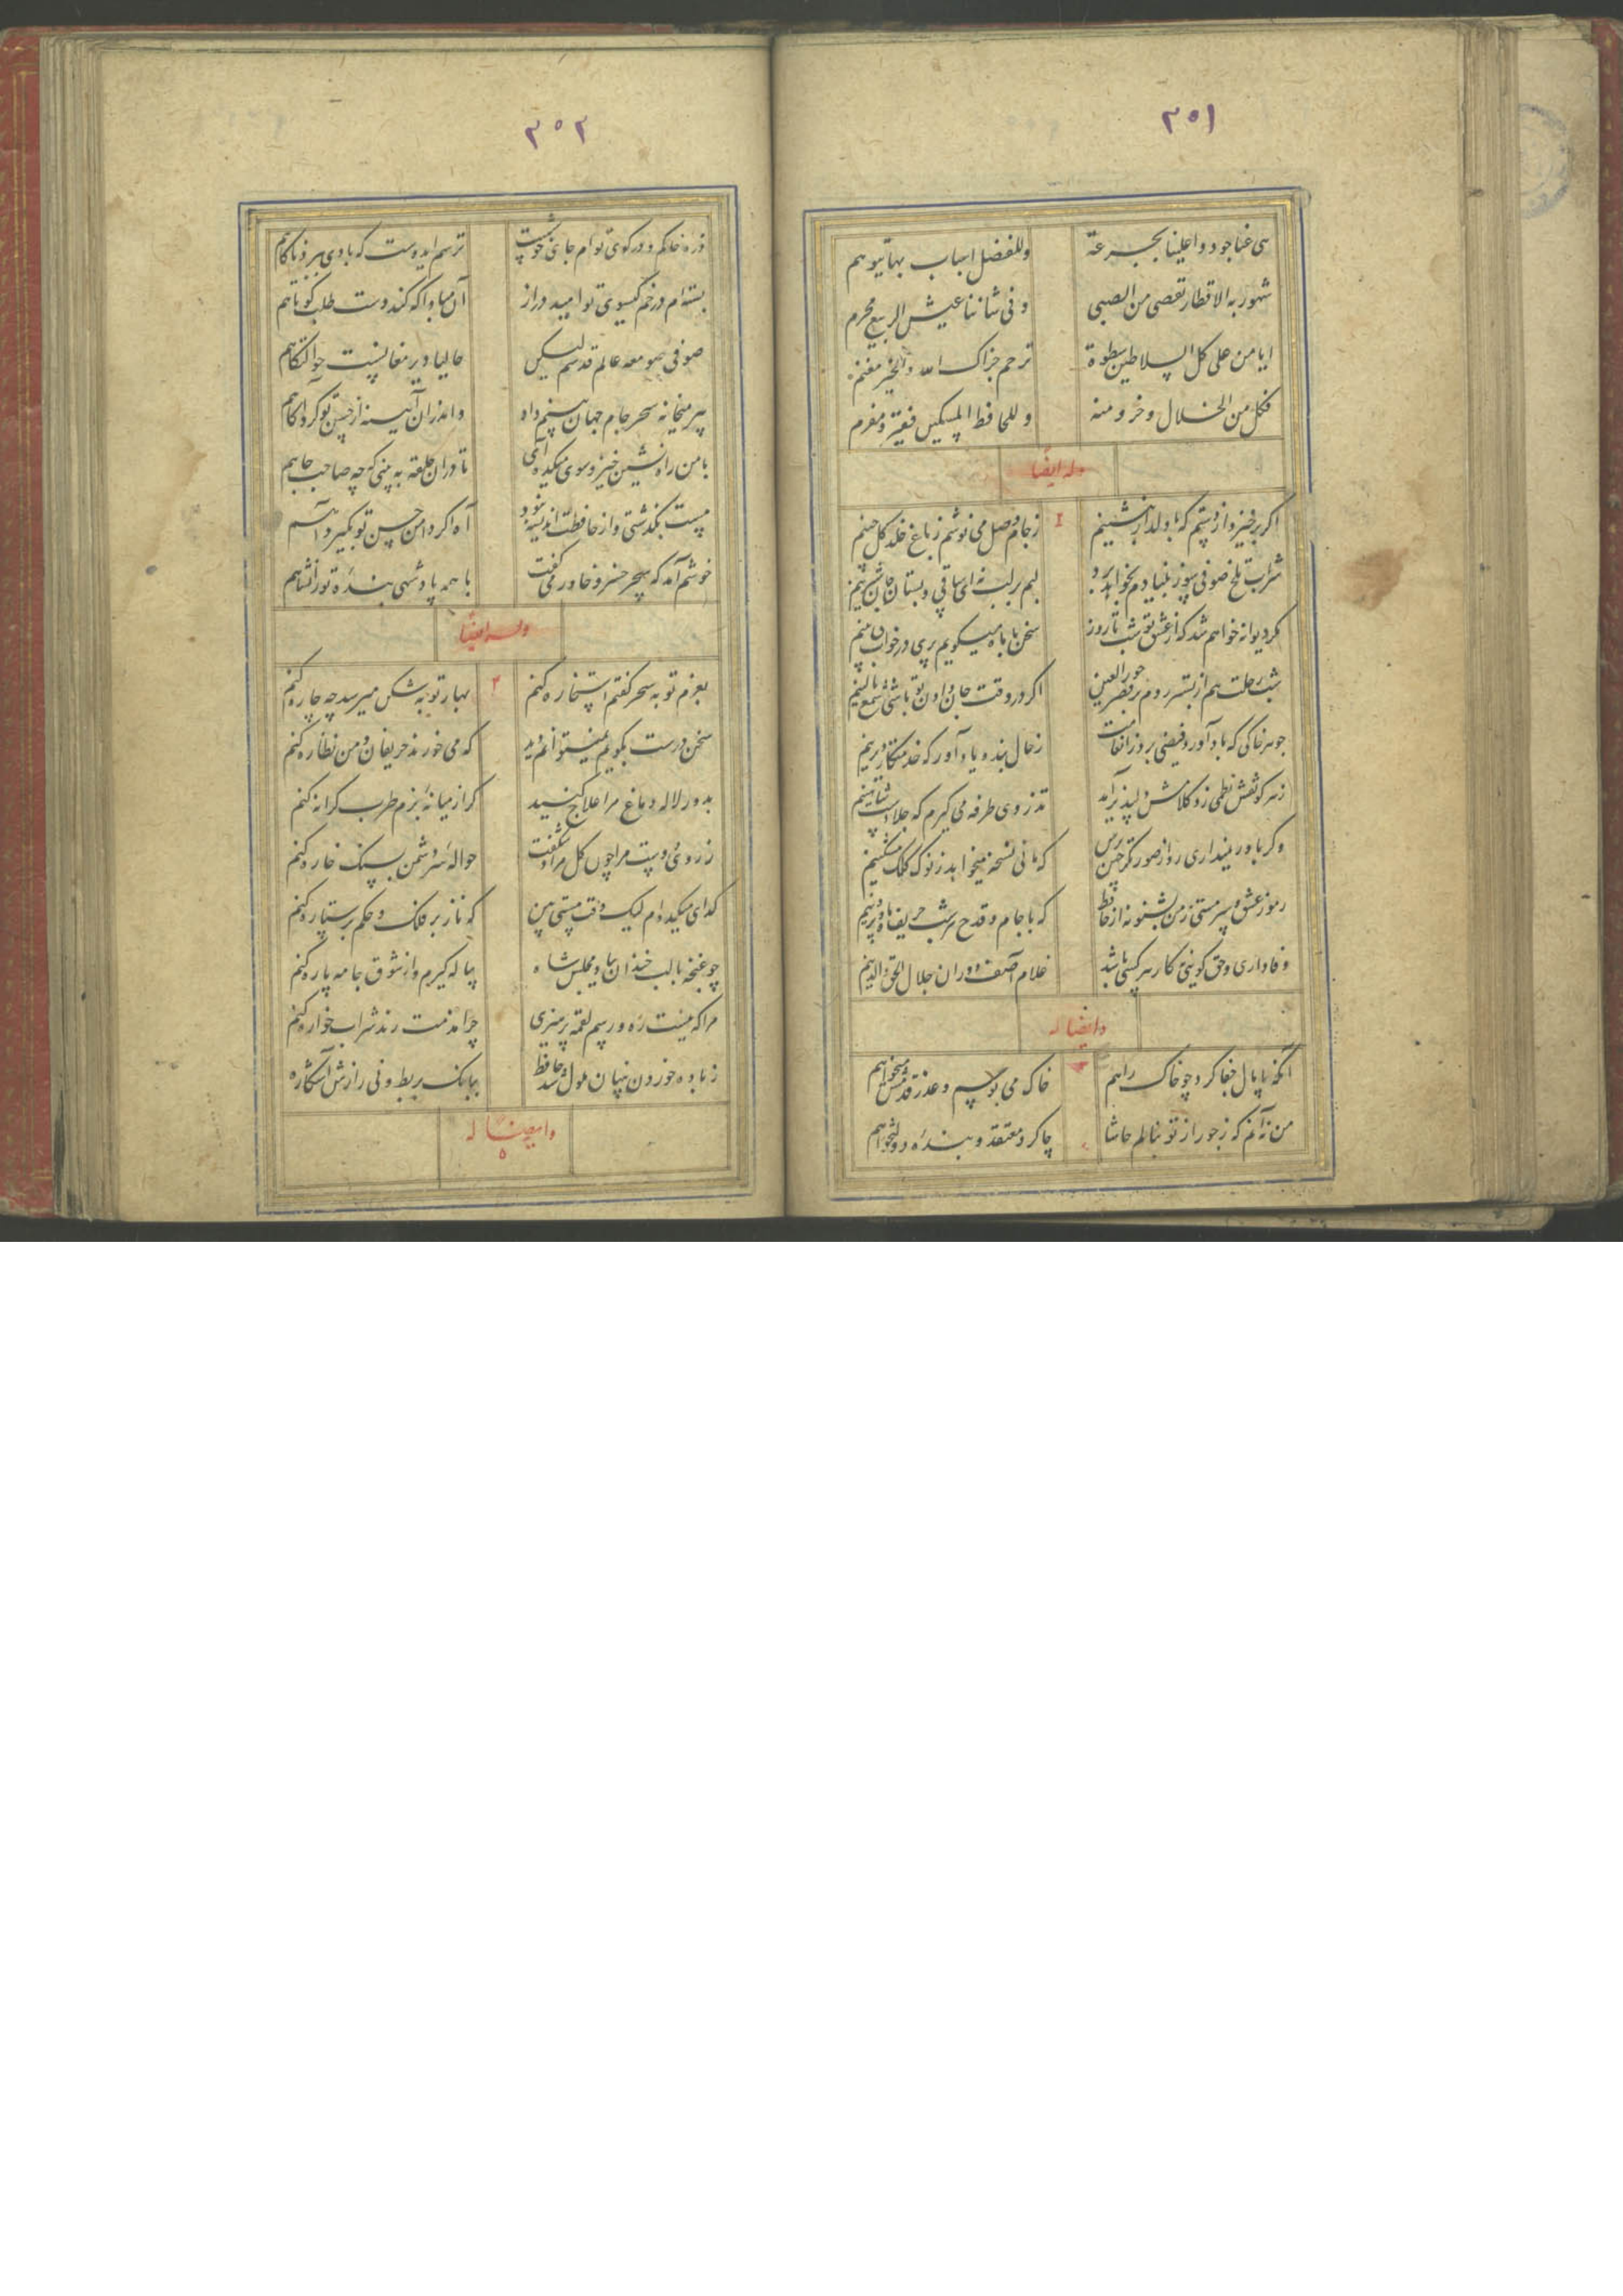 ۳۵۱
بنی عمنا جودوا علینا بجرعة
وللفضل اسباب بها یتوسم
شهور به الاقطار تقصی من الصبی
وفی شاننا عیش الربیع محرم
ایا من علی کل السلاطین سطوة
ترحم جزاک الله والخیر مغنم
فکل من الخلان وخر ومنه
وللحافظ المسکین فقیر ومغرم
وله ایضا
اکر برخیزد از دستم که با دلدار بنشینم
ز جام وصل می نوشم ز باغ خلد کل چینم
شراب تلخ صوفی سوز بنیادم بخواهد برد
لبم بر لب نه ای ساقی و بستان جان شیرینم
مکر دیوانه خواهم شد که از عشق تو شب تا روز
سخن با ماه میکویم پری در خواب می بینم
شب رحلت هم از بستر روم بر قصر حور العین
اکر در وقت جان دادن تو باشی شمع بالینم
چو هر خاکی که باد آورد فیضی برد از انعامت
ز حال بنده یاد آور که خدمتکار دیرینم
نه هر کو نقش نظمی زد کلامش دلپذیر آمد
تذروی طرفه می کیرم که چالاکست شاهینم
وکر باور نمیداری رو از صورتکر چین پرس
که مانی نسخه میخواهد ز نوک کلک مشکینم
رموز عشق و سرمستی ز من بشنو نه از حافظ
که با جام و قدح هر شب حریف ماه و پروینم
وفاداری و حق کویی نه کار هر کسی باشد
غلام آصف دوران جلال الحق والدینم
وایضا له
آنکه پامال جفا کرد چو خاک راهم
خاک می بوسم و عذر قدمش میخواهم
من نه آنم که ز جور از تو بنالم حاشا
چاکر و معتقد و بنده دولتخواهم
۳۵۲
ذره خاکم و در کوی توام جای خوشست
ترسم ای دوست که بادی ببرد ناکاهم
بسته ام در خم کیسوی تو امید دراز
آن مبادا که کند دست طلب کوتاهم
صوفی صومعه عالم قدسم لیکن
حالیا دیر مغانیست حوالتکاهم
پیر میخانه سحر جام جهان بینم داد
واندران آینه از حسن تو کرد آکاهم
با من راه نشین خیز و سوی میکده آی
تا دران حلقه به بینی که چه صاحب جاهم
مست بکذشتی و از حافظت اندیشه نبود
آه اکر دامن حسن تو بکیرد آهم
خوشم آمد که سحر خسرو خاور می کفت
با همه پادشهی بنده تورانشاهم
وله ایضا
بعزم توبه سحر کفتم استخاره کنم
بهار توبه شکن میرسد چه چاره کنم
سخن درست بکویم نمیتوانم دید
که می خورند حریفان و من نظاره کنم
بدور لاله دماغ مرا علاج کنید
کر از میانه بزم طرب کرانه کنم
ز روی دوست مرا چون کل مراد شکفت
حواله سر دشمن بسنک خاره کنم
کدای میکده ام لیک وقت مستی بین
که ناز بر فلک و حکم بر ستاره کنم
چو غنچه با لب خندان بیاد مجلس شاه
پیاله کیرم و از شوق جامه پاره کنم
مرا که نیست ره و رسم لقمه پرهیزی
چرا مذمت رند شراب خواره کنم
ز باده خوردن پنهان ملول شد حافظ
ببانک بربط و نی رازش آشکاره
وایضا له